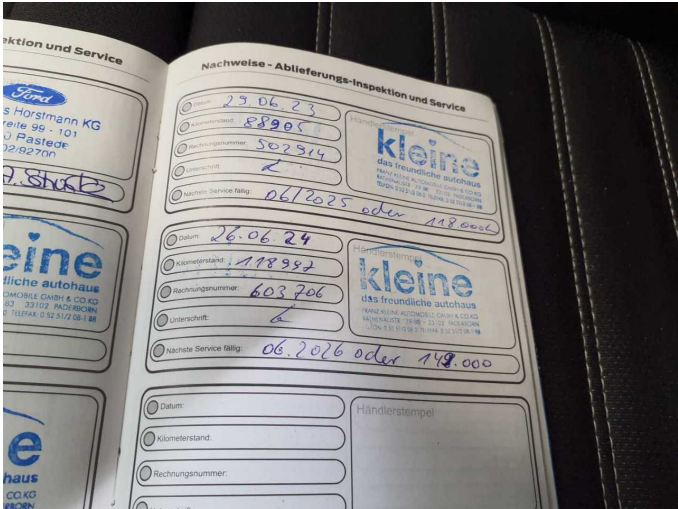 ektion und Service
Ford
s Horstmann KG
reite 99 - 101
Rastede
02/92700
eine
dliche autohaus
OMOBILE GMBH & CO.KG
33102 PADERBORN
TELEFAX 0 52 51/2 08-1 88
e
haus
CO.KG
Nachweise - Ablieferungs-Inspektion und Service
Datum: 29.06.23
Kilometerstand: 88905
Rechnungsnummer: 502914
Unterschrift:
Nächste Service fällig: 06/2025 oder 118000
Händlerstempel
kleine
das freundliche autohaus
FRANZ KLEINE AUTOMOBILE GMBH & CO.KG
33102 PADERBORN
Datum: 26.06.24
Kilometerstand: 118997
Rechnungsnummer: 603706
Unterschrift:
Nächste Service fällig: 06.2026 oder 148.000
Händlerstempel
kleine
das freundliche autohaus
FRANZ KLEINE AUTOMOBILE GMBH & CO.KG
33102 PADERBORN
Datum:
Kilometerstand:
Rechnungsnummer:
Händlerstempel